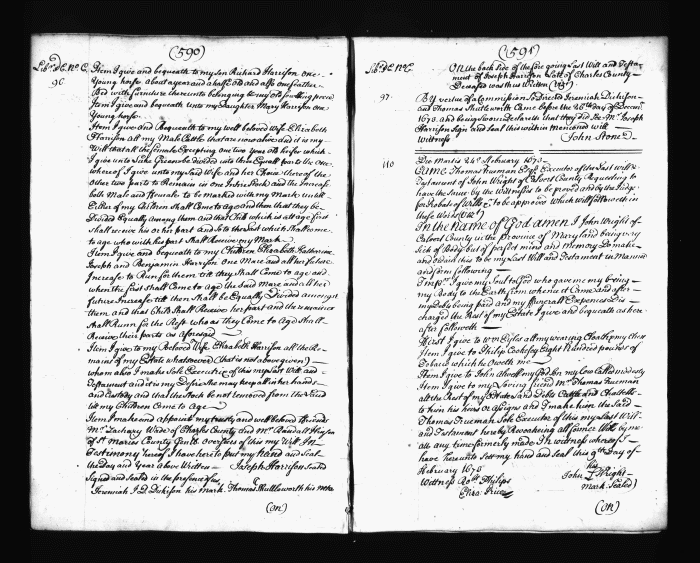 (590)
Lib.r d E. N.o E.
96.
Item I give and bequeath to my son Richard Harrison one
Young horse about a year and a half old and also one feather
Bed with furniture thereunto belonging
Item I give and bequeath unto my Daughter Mary Harrison one
Young horse.
Item I give and Bequeath to my well beloved Wife Elizabeth
Harrison all my Male Cattle that are now alive and it is my
Will that all the female Excepting one two Year old heifer which
I give unto Luke Greene be divided into three Equall parts the one
whereof I give unto my said Wife and her Choice thereof the
other two parts to Remain in one Joint Stock and the Increase
both Male and female to be marked with my Mark untill
Either of my Children Shall Come to age and then that they be
Divided Equally Among them and that Child which is att age first
shall receive his or her part and so to the last which shall come
to age who with his part Shall Receive my Mark
Item I give and bequeath to my Children Elizabeth Katherine
Joseph and Benjamin Harrison One Mare and all her future
Increase to Run for them till they shall Come to age and
when the first shall Come to Age the said Mare and all her
future Increase till then Shall be Equally Divided amongst
them and that Child Shall Receive her part and the remainder
Shall Runn for the Rest who as they Come to Age Shall
Receive their parts as aforesaid
Item I give to my Beloved Wife Elizabeth Harrison all the Re-
mains of my Estate whatsoever (that is not above given)
whom also I make Sole Executrix of this my last Will and
Testament and it is my Desire She may keep all in her hands
and Custody and that the Stock be not removed from the
till my Children Come to Age
Item I make and appoint my trusty and well beloved friends
Mr. Zachary Wade of Charles County and Mr. Randall
of St. Maries County Gentl. overseers of this my Will In
Testimony hereof I have hereto put my hand and Seal
the Day and Year above Written Joseph Harrison Sealed
Signed and Sealed in the presence of us
Jeremiah J D Dickison his mark. Thomas Shuttleworth his
(on)
(591)
Lib.r d E. N.o E
On the back side of the fore going Last Will and Testa-
ment of Joseph Harrison Late of Charles County
Deceased was thus Written (Viz.t)
97.
By vertue of a Commission to Directed Jeremiah Dickison
and Thomas Shutleworth Came before me the 26th day of Decem.r
1673 and being Sworn Declareth that they did See Mr Joseph
Harrison Sign and Seal this within mentioned will
Witness John Stone
110
Die Martis 24.o February 1673
Came Thomas Trueman Esq.r Executor of the Last will &
Testament of John Wright of Calvert County Requesting to
have the Same by the Witnesses to be proved and by the Judge
for Probate of Wills &c to be approved which Will followeth in
these Words (viz.t)
In the Name of God amen I John Wright of
Calvert County in the Province of Maryland being very
Sick of Body but of perfect mind and memory Do make
and ordain this to be my Last Will and Testament in Manner
and form following
Imps. I give my Soul to God who gave me my being
my Body to the Earth from whence it Came and after
my Debts being paid and my ffunerall Expences Dis
charged the Rest of my Estate I give and bequeath as here
after followeth
First I give to all my wearing Cloaths my Chest
Item I give to Philip Cocksey Eight Hundred pounds of
Tobacco which he Oweth me
Item I give to John
Item I give to my Loving friend Mr. Thomas Trueman
all the Rest of my Estate and Debts Cattle and Chattells
to him his heirs or Assigns and I make him the Said
Thomas Trueman Sole Executor of this my Last Will
and Testament hereby Revoakeing all former Wills by me
att any time formerly made In witness whereof I
have hereunto Sett my hand and Seal this 9th Day of
February 1673
his
Witness Phylips John I Wright
Eliza: Price mark Sealed)
(on)